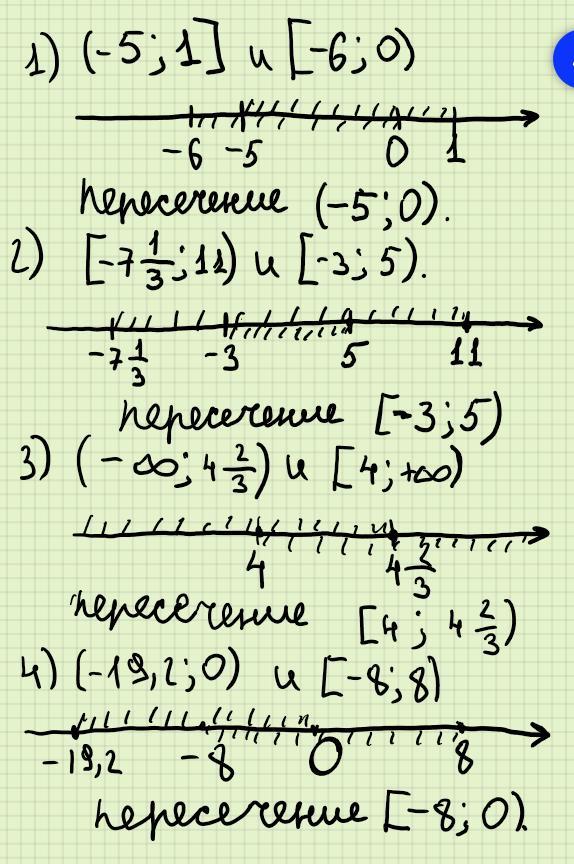 1) (-5; 1] и [-6; 0)
-6 -5 0 1
пересечение (-5; 0).
2) [-7 1/3; 11) и [-3; 5).
-7 1/3 -3 5 11
пересечение [-3; 5)
3) (-∞; 4 2/3) и [4; +∞)
4 4 2/3
пересечение [4; 4 2/3)
4) (-19,2; 0) и [-8; 8)
-19,2 -8 0 8
пересечение [-8; 0).